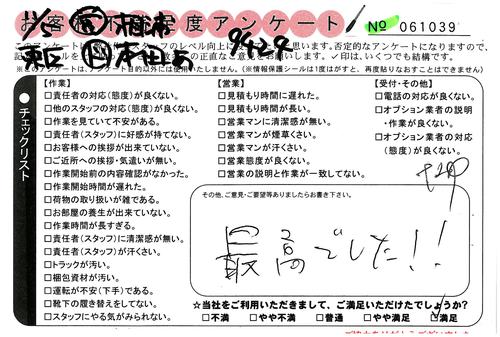 お客様不満足度アンケート
№ 061039
このアンケートは
スタッフのレベル向上に
思います。否定的なアンケートになりますので、
の正直なご意見をお願いします。✓印は、いくつでも結構です。
※このアンケートは、アンケート目的以外には使用いたしません。(※情報保護シールは1度はがすと、再度貼りなおすことはできません。)
チェックリスト
【作業】
□責任者の対応(態度)が良くない。
□他のスタッフの対応(態度)が良くない。
□作業を見ていて不安がある。
□責任者(スタッフ)に好感が持てない。
□お客様への挨拶が出来ていない。
□ご近所への挨拶・気遣いが無い。
□作業開始前の内容確認がなかった。
□作業開始時間が遅れた。
□荷物の取り扱いが雑である。
□お部屋の養生が出来ていない。
□作業時間が長すぎる。
□責任者(スタッフ)に清潔感が無い。
□責任者(スタッフ)が汗くさい。
□トラックが汚い。
□梱包資材が汚い。
□運転が不安(下手)である。
□靴下の履き替えをしてない。
□スタッフにやる気がみられない。
【営業】
□見積もり時間に遅れた。
□見積もり時間が長い。
□営業マンに清潔感が無い。
□営業マンが煙草くさい。
□営業マンが汗くさい。
□営業態度が良くない。
□営業の説明と作業が一致してない。
【受付・その他】
□電話の対応が良くない。
□オプション業者の説明
・作業が良くない。
□オプション業者の対応
(態度)が良くない。
その他、ご意見・ご要望等ありましたらお書き下さい。
最高でした!!
☆当社をご利用いただきまして、ご満足いただけたでしょうか?
□不満 □やや不満 □普通 □やや満足 □満足